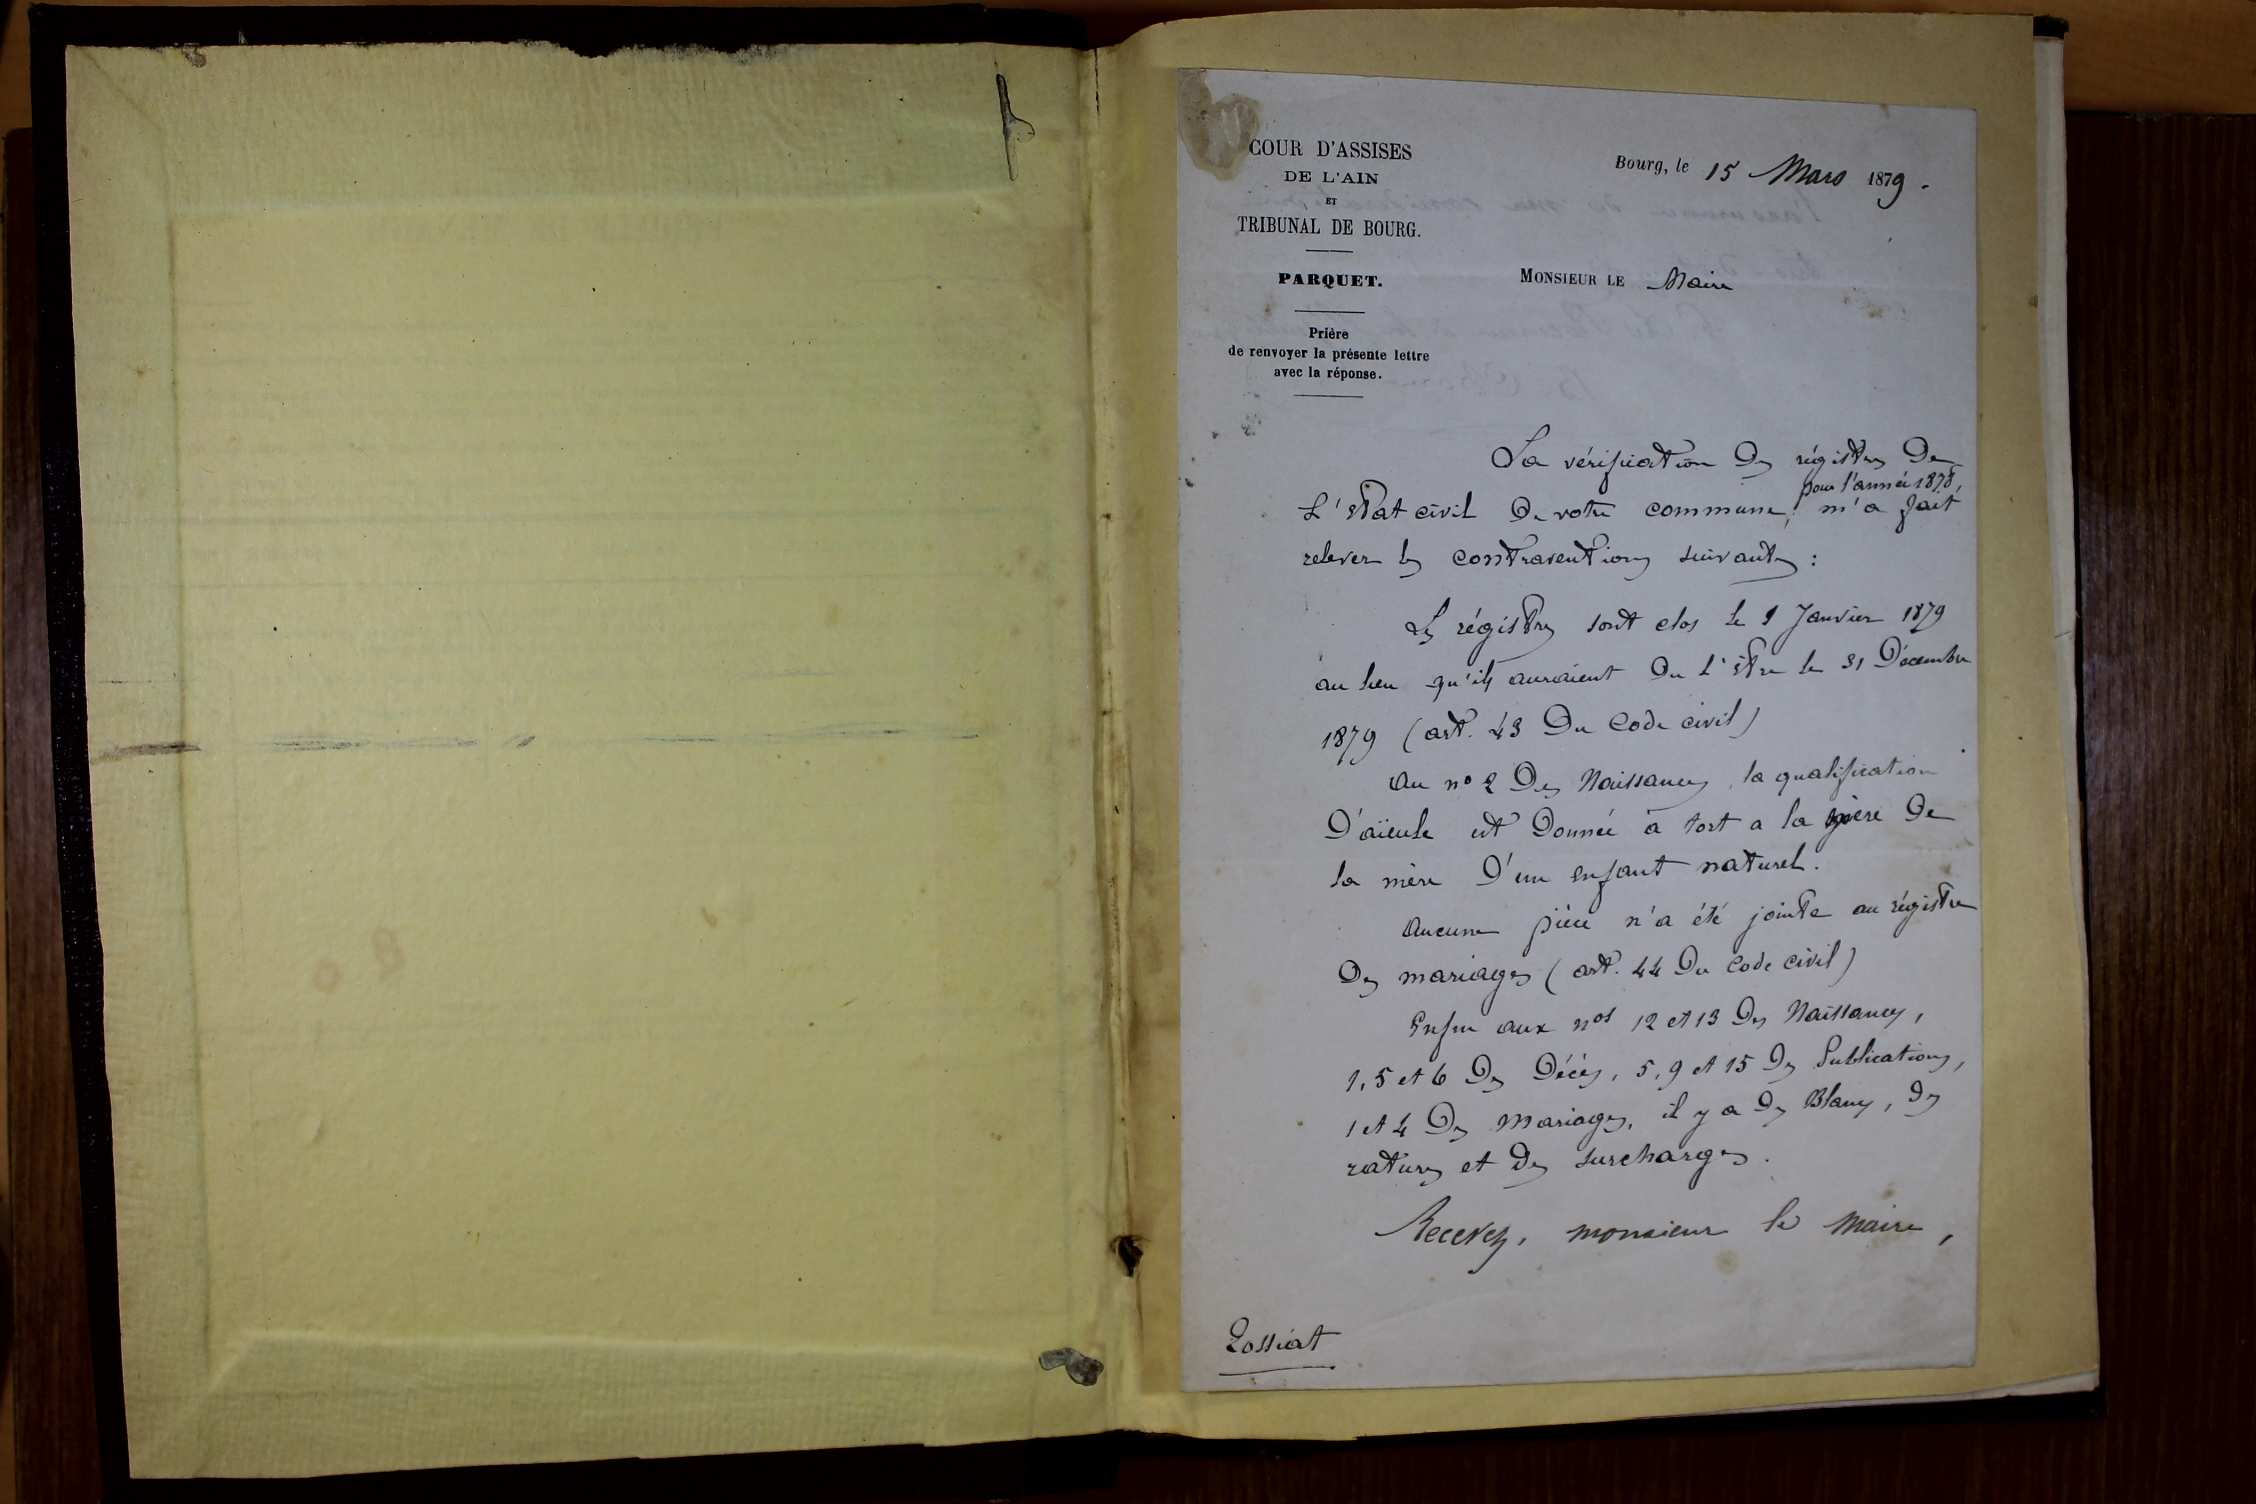 COUR D'ASSISES
DE L'AIN
ET
TRIBUNAL DE BOURG.
PARQUET.
Prière
de renvoyer la présente lettre
avec la réponse.
Bourg, le 15 Mars 1879.
MONSIEUR LE Maire
La vérification des régistres de
pour l'année 1878,
l'état civil de votre commune, m'a fait
relever les contraventions suivantes :
Les régistres sont clos le 1 Janvier 1879
au lieu qu'ils auraient du l'être le 31 Décembre
1879 (art. 43 du Code civil)
Au nº 2 des Naissances, la qualification
d'aïeule est donnée à tort a la mère de
la mère d'un enfant naturel.
Aucune pièce n'a été jointe au régistre
des mariages (art. 44 du Code civil)
Enfin aux nos 12 et 13 des Naissances,
1, 5 et 6 des Décès, 5, 9 et 15 des Publications,
1 et 4 des Mariages, il y a des Blancs, des
ratures et des surcharges.
Recevez, monsieur le Maire,
Lossiat